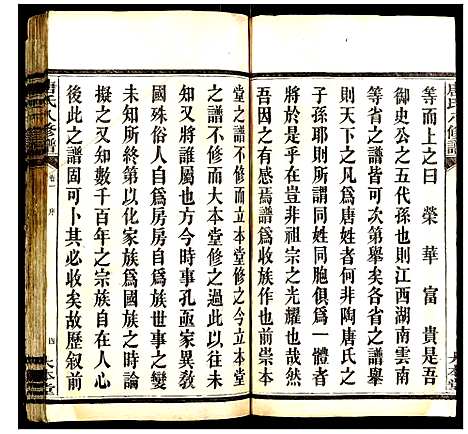 等而上之曰榮華富貴是吾
御史公之五代孫也則江西湖南雲南
等省之譜皆可次第舉矣各省之譜舉
則天下之凡為唐姓何一非陶唐氏之
子孫耶則所謂同姓同胞俱為一體者
將於是乎在豈非祖宗之光耀也哉
吾因之有感焉譜為收族作也前崇本
堂之譜不修而立本堂修之立本堂
之譜不修而大本堂修之過此以往
又將誰屬也方今時事孔亟家異教
國殊俗人自為房房自為族世事之變
未知所終第以化家族為國族之時論
擬之又知數千百年之宗族當自在人心
後此之譜固可卜其必收矣故歷敘前
唐氏八修譜
卷一
序
四
大本堂
唐氏八修譜
大本堂